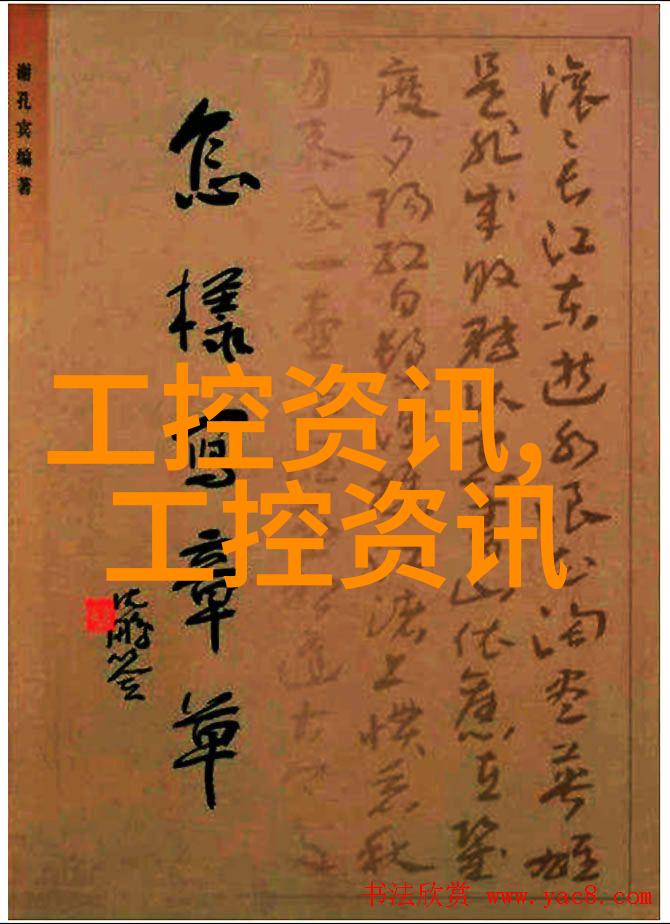 谢孔宾编著
怎樣寫章草
沈鹏签
工控资讯,
工控资讯
滚〻长江东逝水浪花淘尽英雄
是非成败转头空青山依旧在几
度夕阳红白发渔樵江渚上惯看秋
月春风一壶
逢古今多
书法欣赏 www.yac8.com